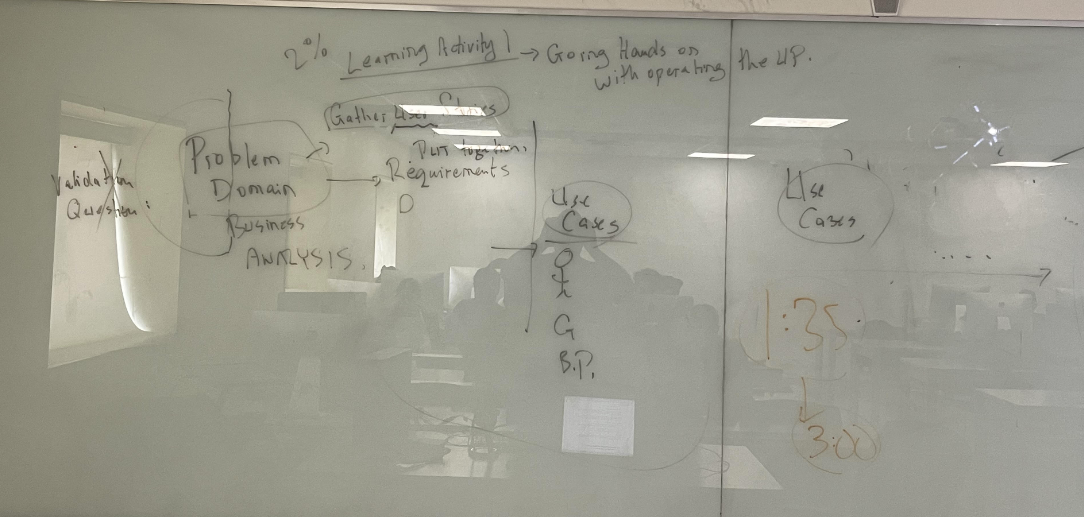 2% Learning Activity 1 → Going Hands on
with operating the UP.
Gather User Stories
Problem
Domain
Business
ANALYSIS.
Validation
Question:
Requirements
D
Use
Cases
G
B.P.
Use
Cases
.....
1:35
3:00